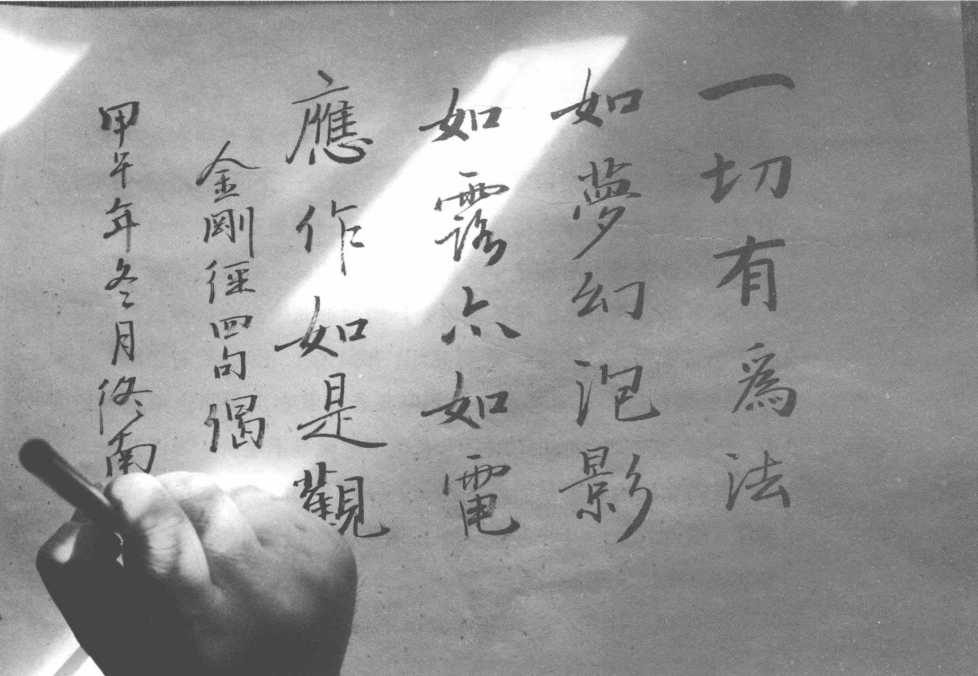 一切有為法
如夢幻泡影
如露亦如電
應作如是觀
金剛經四句偈
甲午年冬月終南